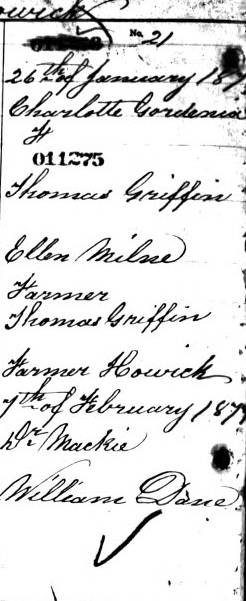 owick
No. 21
26th of January 187
Charlotte Gordenia
F
011275
Thomas Griffin
Ellen Milne
Farmer
Thomas Griffin
Farmer Howick
7th of February 187
Dr. Mackie
William Dane